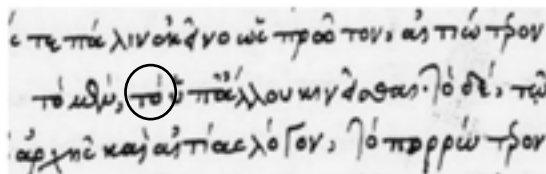 πάλιν ὡς πρῶτον, αἰτιώτερον
τὸ τὸ ὑπ' ἄλλου κινεῖσθαι· τὸ δὲ,
ἀρχῆς καὶ αἰτίας λόγον, τὸ πορρώτερον